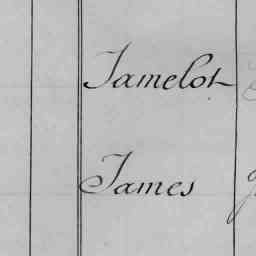 Jamelot
James